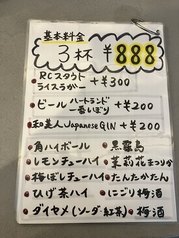 基本料金
3杯 ¥888
RCスタウト
ライスラガー +¥300
ビール ハートランド
一番しぼり +¥200
和美人 Japanese GIN +¥200
角ハイボール 黒霧島
レモンチューハイ 茉莉花まつりか
梅ぼしチューハイ たんたかたん
ひげ茶ハイ にごり梅酒
ダイヤメ(ソーダ・紅茶) 梅酒